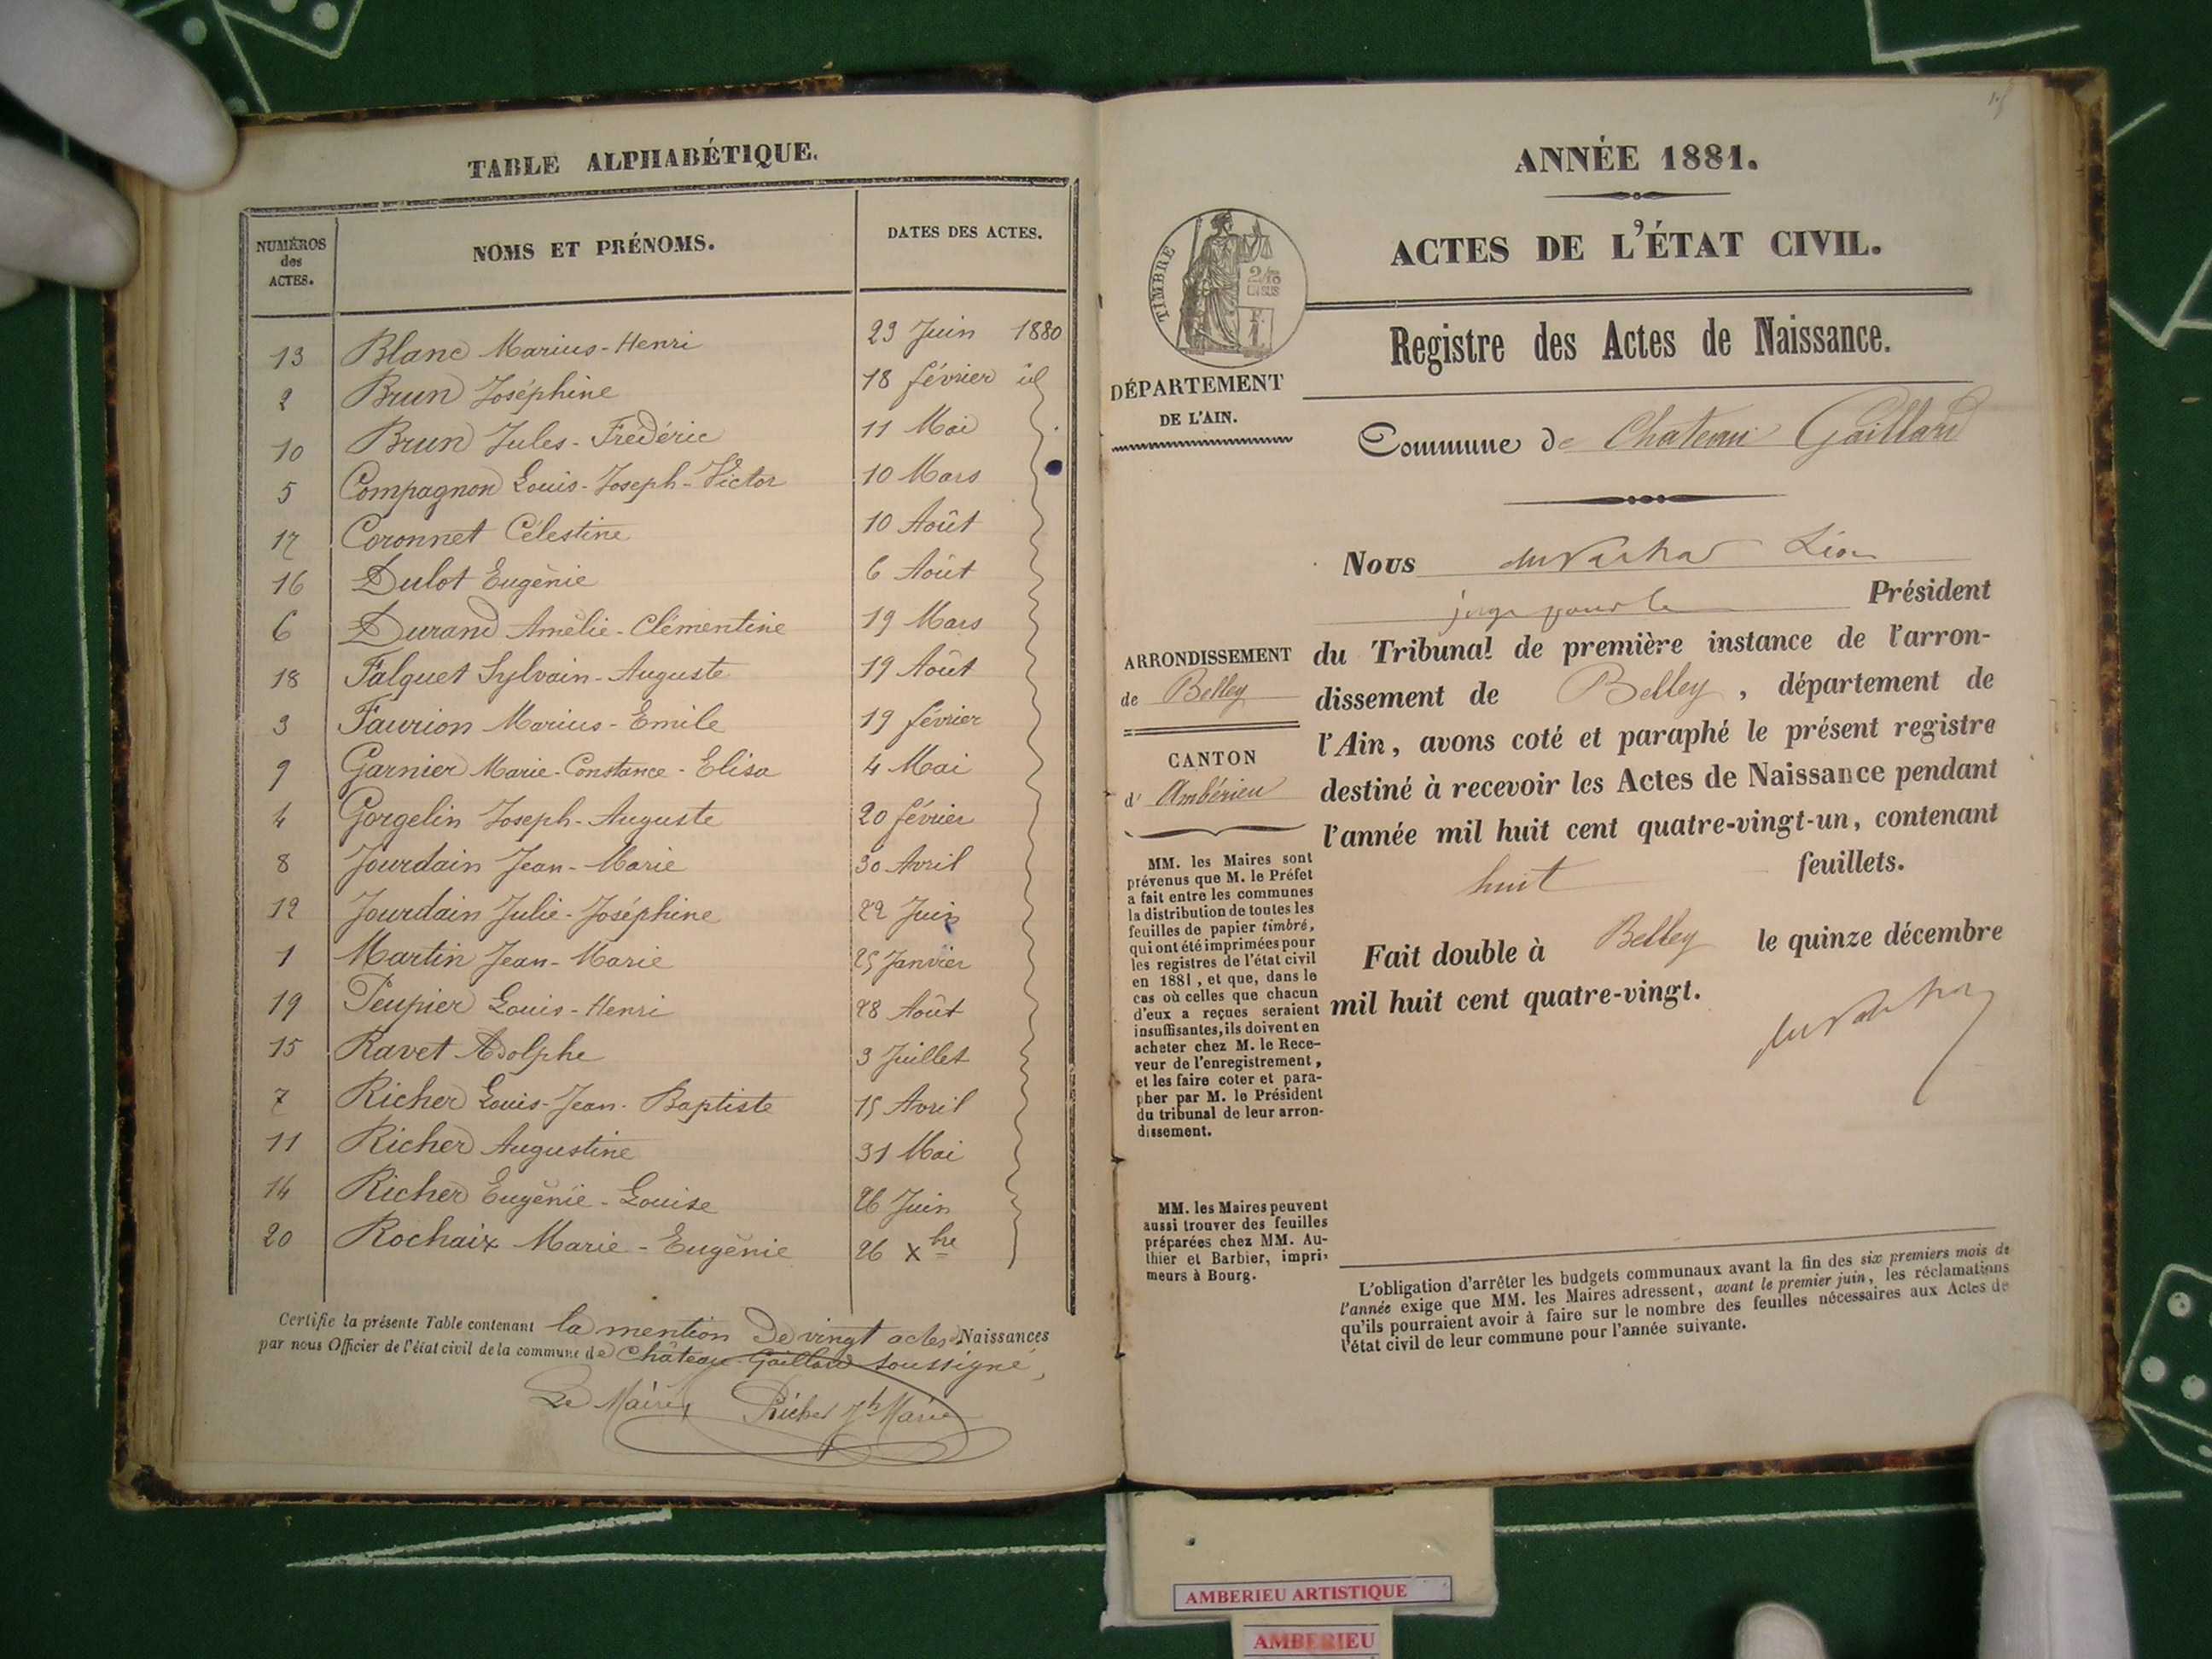 TABLE ALPHABÉTIQUE.
NUMÉROS des ACTES.
NOMS ET PRÉNOMS.
DATES DES ACTES.
13 Blanc Marius-Henri 23 Juin 1880
2 Brun Joséphine 18 février id
10 Brun Jules-Frédéric 11 Mai
5 Compagnon Louis-Joseph-Victor 10 Mars
17 Coronnet Célestine 10 Août
16 Dulot Eugènie 6 Août
6 Durand Amélie-Clémentine 19 Mars
18 Falquet Sylvain-Auguste 19 Août
3 Faurion Marius-Emile 19 février
9 Garnier Marie-Constance-Elisa 4 Mai
4 Gorgelin Joseph-Auguste 20 février
8 Jourdain Jean-Marie 30 Avril
12 Jourdain Julie-Joséphine 22 Juin
1 Martin Jean-Marie 25 Janvier
19 Peupier Louis-Henri 28 Août
15 Ravet Adolphe 3 Juillet
7 Richer Louis-Jean-Baptiste 15 Avril
11 Richer Augustine 31 Mai
14 Richer Eugènie-Louise 26 Juin
20 Rochaix Marie-Eugènie 26 Xbre
Certifie la présente Table contenant la mention De vingt actes Naissances
par nous Officier de l'état civil de la commune de Château-Gaillard soussigné,
Le Maire, Richer Jh Marie
ANNÉE 1881.
ACTES DE L'ÉTAT CIVIL.
TIMBRE
Registre des Actes de Naissance.
DÉPARTEMENT
DE L'AIN.
Commune de Chateau Gaillard
Nous Léon
juge pour le Président
du Tribunal de première instance de l'arron-
dissement de Belley, département de
l'Ain, avons coté et paraphé le présent registre
destiné à recevoir les Actes de Naissance pendant
l'année mil huit cent quatre-vingt-un, contenant
huit feuillets.
Fait double à Belley le quinze décembre
mil huit cent quatre-vingt.
ARRONDISSEMENT
de Belley
CANTON
d' Ambérieu
MM. les Maires sont
prévenus que M. le Préfet
a fait entre les communes
la distribution de toutes les
feuilles de papier timbré,
qui ont été imprimées pour
les registres de l'état civil
en 1881, et que, dans le
cas où celles que chacun
d'eux a reçues seraient
insuffisantes, ils doivent en
acheter chez M. le Rece-
veur de l'enregistrement,
et les faire coter et para-
pher par M. le Président
du tribunal de leur arron-
dissement.
MM. les Maires peuvent
aussi trouver des feuilles
préparées chez MM. Au-
thier et Barbier, impri-
meurs à Bourg.
L'obligation d'arrêter les budgets communaux avant la fin des six premiers mois de
l'année exige que MM. les Maires adressent, avant le premier juin, les réclamations
qu'ils pourraient avoir à faire sur le nombre des feuilles nécessaires aux Actes de
l'état civil de leur commune pour l'année suivante.
AMBERIEU ARTISTIQUE
AMBERIEU